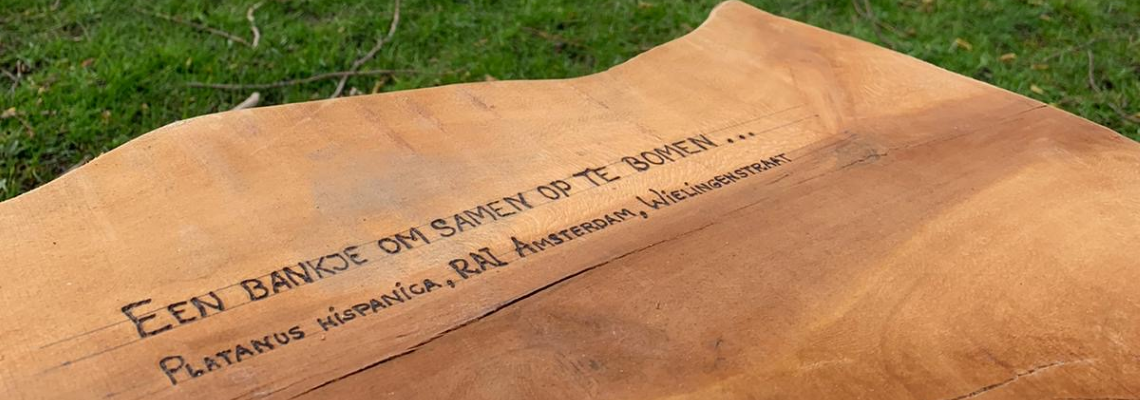 EEN BANKJE OM SAMEN OP TE BOMEN ...
PLATANUS HISPANICA, RAI AMSTERDAM, WIELINGENSTRAAT